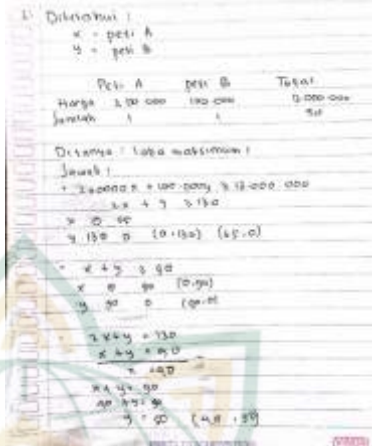 Diketahui :
x = peti A
y = peti B
Peti A peti B Total
Harga 200 000 100 000 13.000.000
Jumlah 1 1 90
Ditanya : Laba maksimum !
Jawab :
200000 x + 100.000y ≥ 13.000 000
2x + y ≥ 130
x 0 65
y 130 0 (0.130) (65.0)
x + y ≥ 90
x 0 90 (0.90)
y 90 0 (90.0)
2x+y = 130
x+y = 90 -
x = 40
x+y = 90
40 + y = 90
y = 50 (40.50)